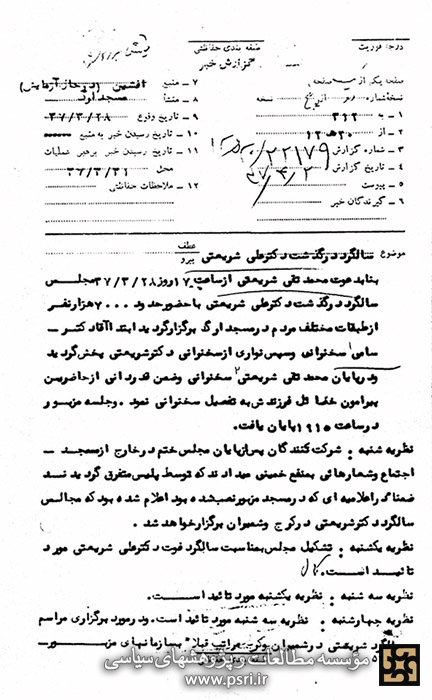 درجه فوریت
طبقه بندی حفاظتی
گزارش خبر
صفحه یکم از سه صفحه
نسخه شماره از نسخه
۱ – به ۳۱۲
۲ – از ۲۰ ھ ۱۲
۳ – شماره گزارش ۲۲۱۷۹/
۴ – تاریخ گزارش ۳۷/۴/۲
۵ – پیوست
۶ – گیرندگان خبر
۷ – منبع افشین (در حال آزمایش)
۸ – منشأ مسجد ارک
۹ – تاریخ وقوع ۳۷/۳/۲۸
۱۰ – تاریخ رسیدن خبر به منبع
۱۱ – تاریخ رسیدن خبر برهبر عملیات
محل ۳۷/۳/۳۱
۱۲ – ملاحظات حفاظتی
موضوع سالگرد درگذشت دکتر علی شریعتی
عطف
پیرو
بنا بدعوت محمد تقی شریعتی از ساعت ۱۷ روز ۳۷/۳/۲۸ مجلس
سالگرد درگذشت دکترعلی شریعتی با حضور حدود ۷۰۰۰ هزار نفر
از طبقات مختلف مردم در مسجد ارک برگزار گردید ابتدا آقا دکتر –
سامی۱ سخنرانی و سپس نواری از سخنرانی دکتر شریعتی پخش گردید
و در پایان محمد تقی شریعتی۲ سخنرانی و ضمن قدردانی از حاضرین
پیرامون خصائل فرزندش به تفصیل سخنرانی نمود . و جلسه مزبور
در ساعت ۱۹۱۵ پایان یافت.
نظریه شنبه : شرکت کنندگان پس از پایان مجلس ختم در خارج از مسجد –
اجتماع و شعارهائی بنفع خمینی میدادند که توسط پلیس متفرق گردیدند
ضمنا در اعلامیه ای که در مسجد مزبور نصب شده بود اعلام شده بود که مجالس
سالگرد دکتر شریعتی در کرج و شمیران برگزار خواهد شد .
نظریه یکشنبه : تشکیل مجلس بمناسبت سالگرد فوت دکترعلی شریعتی مورد
تائید است.
نظریه سه شنبه : نظریه یکشنبه مورد تائید است.
نظریه چهارشنبه : نظریه سه شنبه مورد تائید است. و در مورد برگزاری مراسم
سالگرد شریعتی در شمیران و کرج مراتب قبلا" بسازمانهای مزبور –
مؤسسه مطالعات و پژوهشهای سیاسی
www.psri.ir